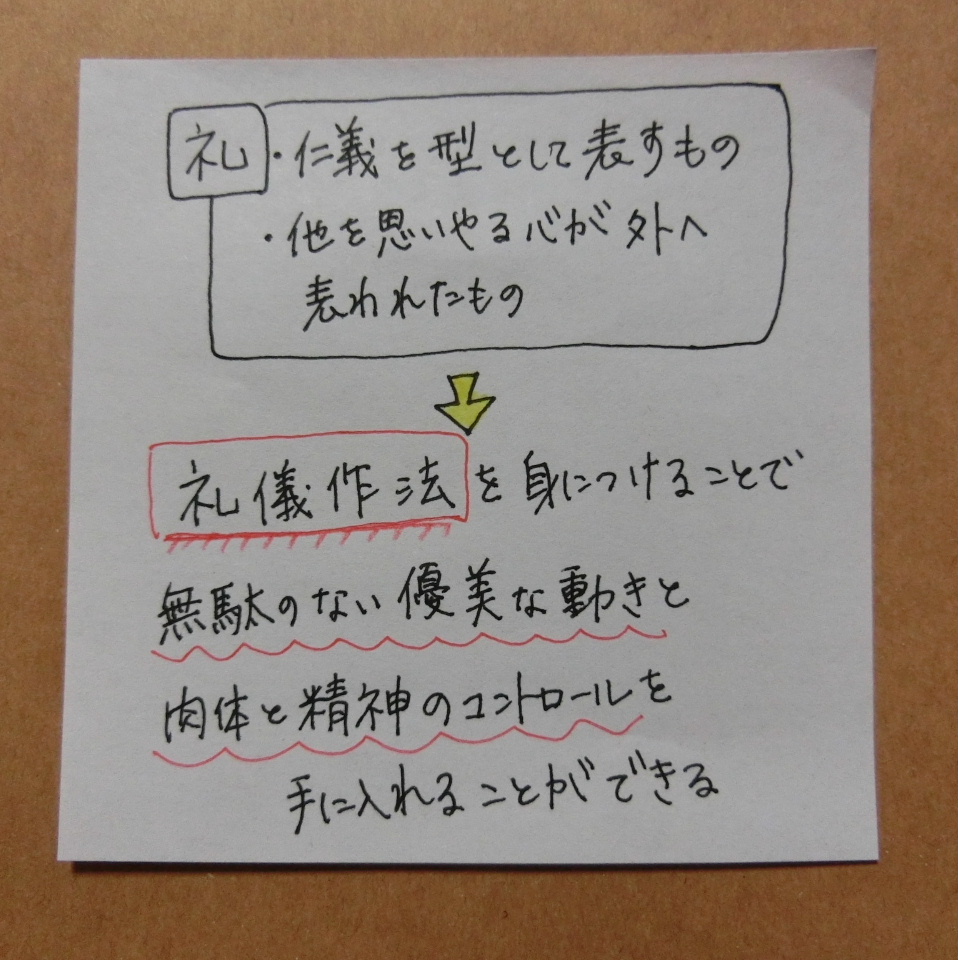 礼・仁義を型として表すもの
・他を思いやる心が外へ
表われたもの
礼儀作法を身につけることで
無駄のない優美な動きと
肉体と精神のコントロールを
手に入れることができる